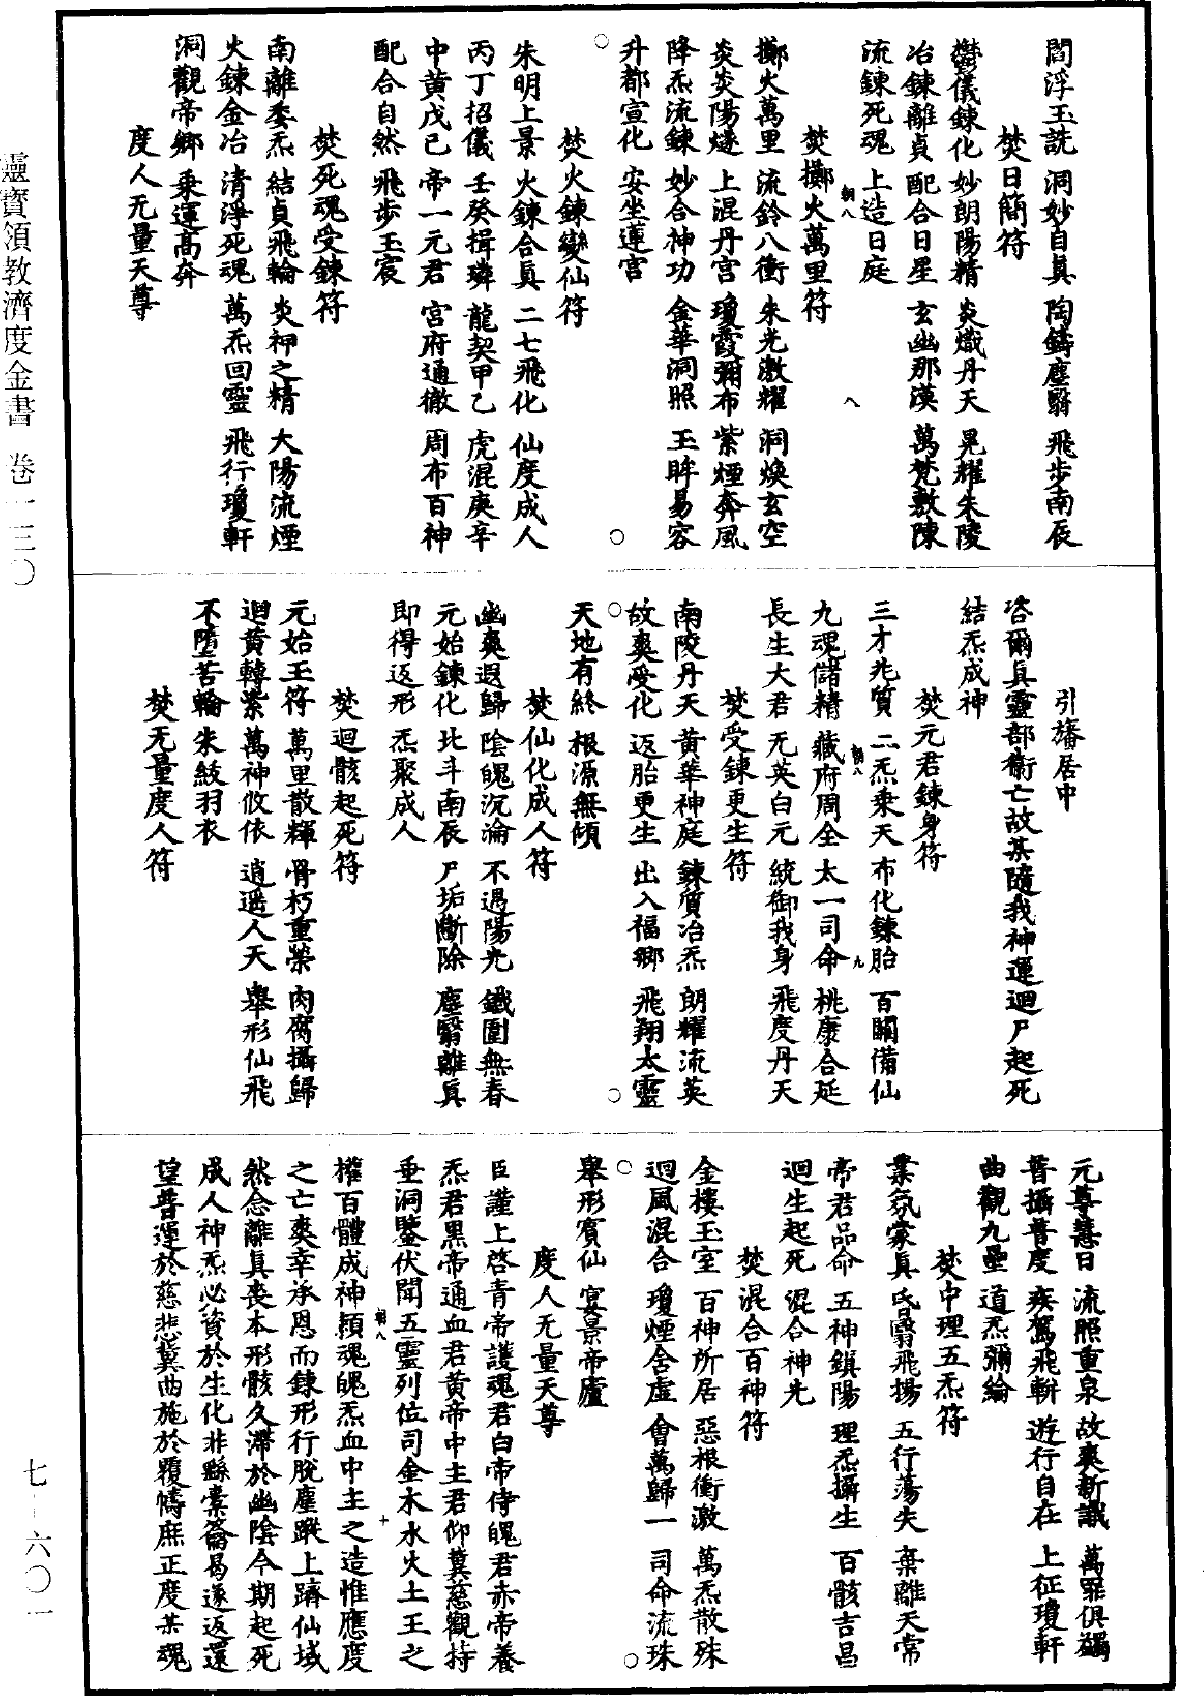 閻浮玉詵　洞妙自眞　陶鑄塵翳　飛步南辰
焚日簡符
鬱儀鍊化　妙朗陽精　炎熾丹天　晃耀朱陵
冶鍊離貞　配合日星　玄幽那漢　萬梵敷陳
流鍊死魂　上造日庭
焚擲火萬里符
擲火萬里　流鈴八衝　朱光激耀　洞煥玄空
炎炎陽燧　上混丹宮　瓊霞彌布　紫煙奔風
降炁流鍊　妙合神功　金華洞照　玉眸易容
升都宣化　安坐蓮宮
焚火鍊變仙符
朱明上景　火鍊合眞　二七飛化　仙度成人
丙丁招儀　壬癸揖璘　龍契甲乙　虎混庚辛
中黃戊己　帝一元君　宮府通徹　周布百神
配合自然　飛步玉宸
焚死魂受鍊符
南離委炁　結貞飛輪　炎神之精　大陽流煙
火鍊金冶　清淨死魂　萬炁回靈　飛行瓊軒
洞觀帝鄉　乗運高奔
度人无量天尊
引旛居中
咨爾眞靈部衛亡故某隨我神運迴尸起死
結炁成神
焚元君鍊身符
三才兆質　二炁乘天　布化鍊胎　百關備仙
九魂儲精　藏府周全　太一司命　桃康合延
長生大君　无英白元　統御我身　飛度丹天
焚受鍊更生符
南陵丹天　黃華神庭　鍊質冶炁　朗耀流英
故爽受化　返胎更生　出入福鄉　飛翔太靈
天地有終　根源無傾
焚仙化成人符
幽爽遐歸　陰魄沉淪　不遇陽光　鐵圍無春
元始鍊化　北斗南辰　尸垢斷除　塵翳離眞
即得返形　炁聚成人
焚迴骸起死符
元始玉符　萬里散輝　骨朽重榮　肉腐攝歸
迴黃轉紫　萬神攸依　逍遥人天　舉形仙飛
不墮苦輪　朱紱羽衣
焚无量度人符
元尊慧日　流照重泉　故爽新識　萬罪俱蠲
普攝普度　疾駕飛輧　遊行自在　上征瓊軒
曲觀九壘　道炁彌綸
焚中理五炁符
業氛蒙眞　昏翳飛揚　五行蕩失　棄離天常
帝君品命　五神鎮陽　理炁攝生　百骸吉昌
迴生起死　混合神光
焚混合百神符
金樓玉室　百神所居　惡根衝激　萬炁散殊
迴風混合　瓊煙舍虛　會萬歸一　司命流珠
舉形賓仙　宴景帝廬
度人无量天尊
臣謹上啓青帝護魂君白帝侍魄君赤帝養
炁君黑帝通血君黃帝中主君仰冀慈觀持
垂洞鑒伏聞五靈列位司金木水火土王之
權百體成神頴魂魄炁血中主之造惟應度
之亡爽幸承恩而鍊形行脫塵蹤上躋仙域
然念離眞喪本形骸久滯於幽陰今期起死
成人神炁必資於生化非縣橐籥曷遂返還
望普運於慈悲冀曲施於覆幬庶正度某魂
靈寶領教濟度金書　卷一三〇
七－六〇一